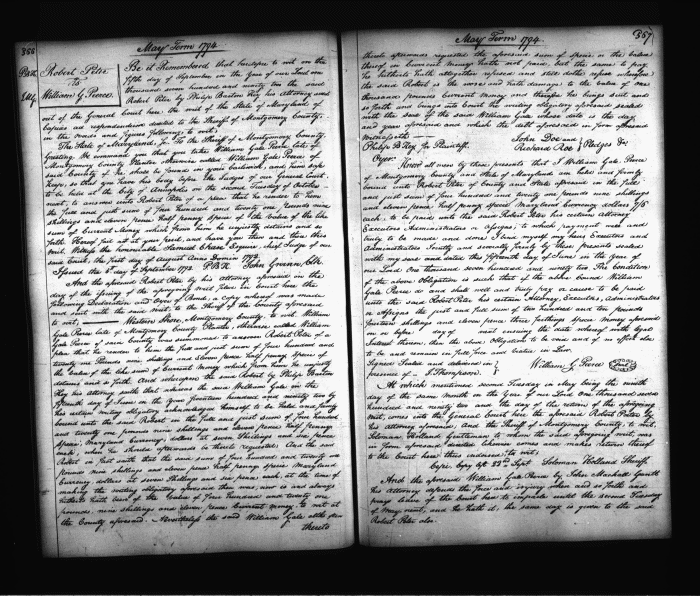 366
May Term 1794
Robert Peter
to
William G Pierce
Be it Remembered that heretofore to wit on the
fifth day of September in the Year of our Lord one
thousand seven hundred and ninety two the said
Robert Peter by Philip Barton Key his attorney sued
out of the General Court here the writ of the State of Maryland of
Capias ad respondendum directed to the Sheriff of Montgomery County
in the Words and Figures following to wit,
The State of Maryland, Sc. To the Sheriff of Montgomery County
Greeting. We command you that you take William Gale Pierce late of
Montgomery County Planter otherwise called William Gale Pierce of
said County if he shall be found in your bailiwick, and him safe
keep, so that you have his body before the Judges of our General Court
to be held at the City of Annapolis on the second Tuesday of October
next, to answer unto Robert Peter of a plea that he render to him
the full and just sum of four hundred and twenty one Pounds nine
shillings and eleven pence half penny specie of the Value of the like
sum of Current Money which from him he unjustly detains and so
forth. Hereof fail not at your peril, and have you then and there this
writ. Witness the honorable Samuel Chase Esquire, chief Judge of our
said Court the first day of August Anno Domini 1792
Issued the 5 day of September 1792 P.B.K. John Gwinn Clk
And the aforesaid Robert Peter by his attorney aforesaid on the
following Declaration and Oyer of Bond, a copy whereof was made
and sent with the said writ to the Sheriff of the County aforesaid
to wit, Western Shore, Montgomery County, to wit. William
Gale Pierce late of Montgomery County Planter, otherwise called William
Gale Pierce of said County was summoned to answer Robert Peter of a
plea that he render to him the full and just sum of four hundred and
twenty one Pounds nine shillings and eleven pence half penny specie of
the Value of the like sum of Current Money which from him he unjustly
detains and so forth. And whereupon the said Robert by Philip Barton
Key his attorney saith that whereas the said William Gale on the
fifteenth day of June in the Year seventeen hundred and ninety two by
his certain writing obligatory acknowledged himself to be held and firmly
bound unto the said Robert in the full and just sum of four hundred
and twenty one pounds nine shillings and eleven pence half penny
specie, Maryland Currency, dollars at seven Shillings and six pence
each, when he should afterwards be thereto requested. And the said
Robert in fact saith that the said sum of four hundred and twenty one
pounds nine shillings and eleven pence half penny specie Maryland
Currency dollars at seven Shillings and six pence each, at the time of
making the writing obligatory aforesaid then was now is and always
hitherto hath been of the Value of four hundred and twenty one
pounds, nine shillings and eleven pence Current money to wit at
the County aforesaid. Nevertheless the said William Gale altho often
thereto
367
May Term 1794
thereto afterwards requested the aforesaid sum of specie or the value
thereof in Current Money hath not paid, but the same to pay
he hitherto hath altogether refused and still doth refuse whereupon
the said Robert is the worse and hath damage to the Value of one
thousand pounds Current money and therefore he brings suit and
so forth and brings into Court the writing obligatory aforesaid sealed
with the seal of the said William Gale whose date is the day
and year aforesaid and which the debt aforesaid in form aforesaid
Witnesseth
Philip B. Key for Plaintiff. John Doe and Richard Roe Pledges &c
Oyer. Know all men by these presents that I William Gale Pierce
of Montgomery County and State of Maryland am held and firmly
bound unto Robert Peter of County and State aforesaid in the full
and just sum of four hundred and twenty one pounds nine shillings
and eleven pence half penny specie Maryland Currency dollars 7/6
each, to be paid unto the said Robert Peter his certain Attorney
Executors Administrators or Assigns, to which payment well and
truly to be made and done I bind myself my Heirs Executors and
Administrators Jointly and severally firmly by these presents sealed
with my seal and dated this fifteenth day of June in the Year of
our Lord One thousand seven hundred and ninety two The Condition
of the above Obligation is such that if the above bound William
Gale Pierce do and shall well and truly pay or cause to be paid
unto the said Robert Peter his certain Attorney, Executors, Administrators
or Assigns the just and full sum of two hundred and ten pounds
fourteen shillings and eleven pence three farthings specie money aforesaid
on or before day of next ensuing the date whereof with legal
Interest thereon, then the above Obligation to be void and of no effect else
to be and remain in full force and virtue in Law.
Signed Sealed and delivered in
presence of — J. Thompson William G. Pierce Seal
At which mentioned second Tuesday in May being the
day of the same Month in the Year of our Lord One thousand seven
hundred and ninety two and the day of the return of the aforegoing
writ, comes into the General Court here the aforesaid Robert Peter by
his attorney aforesaid, and the Sheriff of Montgomery County, to wit,
Soloman Holland Gentleman to whom the said aforegoing writ was
in form aforesaid directed likewise comes and makes return thereof
to the Court here thus endorsed, to wit,
Cepi. Copy left 22d Sept. Soloman Holland Sheriff
And the aforesaid William Gale Pierce by John Marshall Gantt
his Attorney defends the force and injury when and so forth and
prays leave of the Court here to imparle until the second Tuesday
of May next, and he hath it, the same day is given to the said
Robert Peter also.